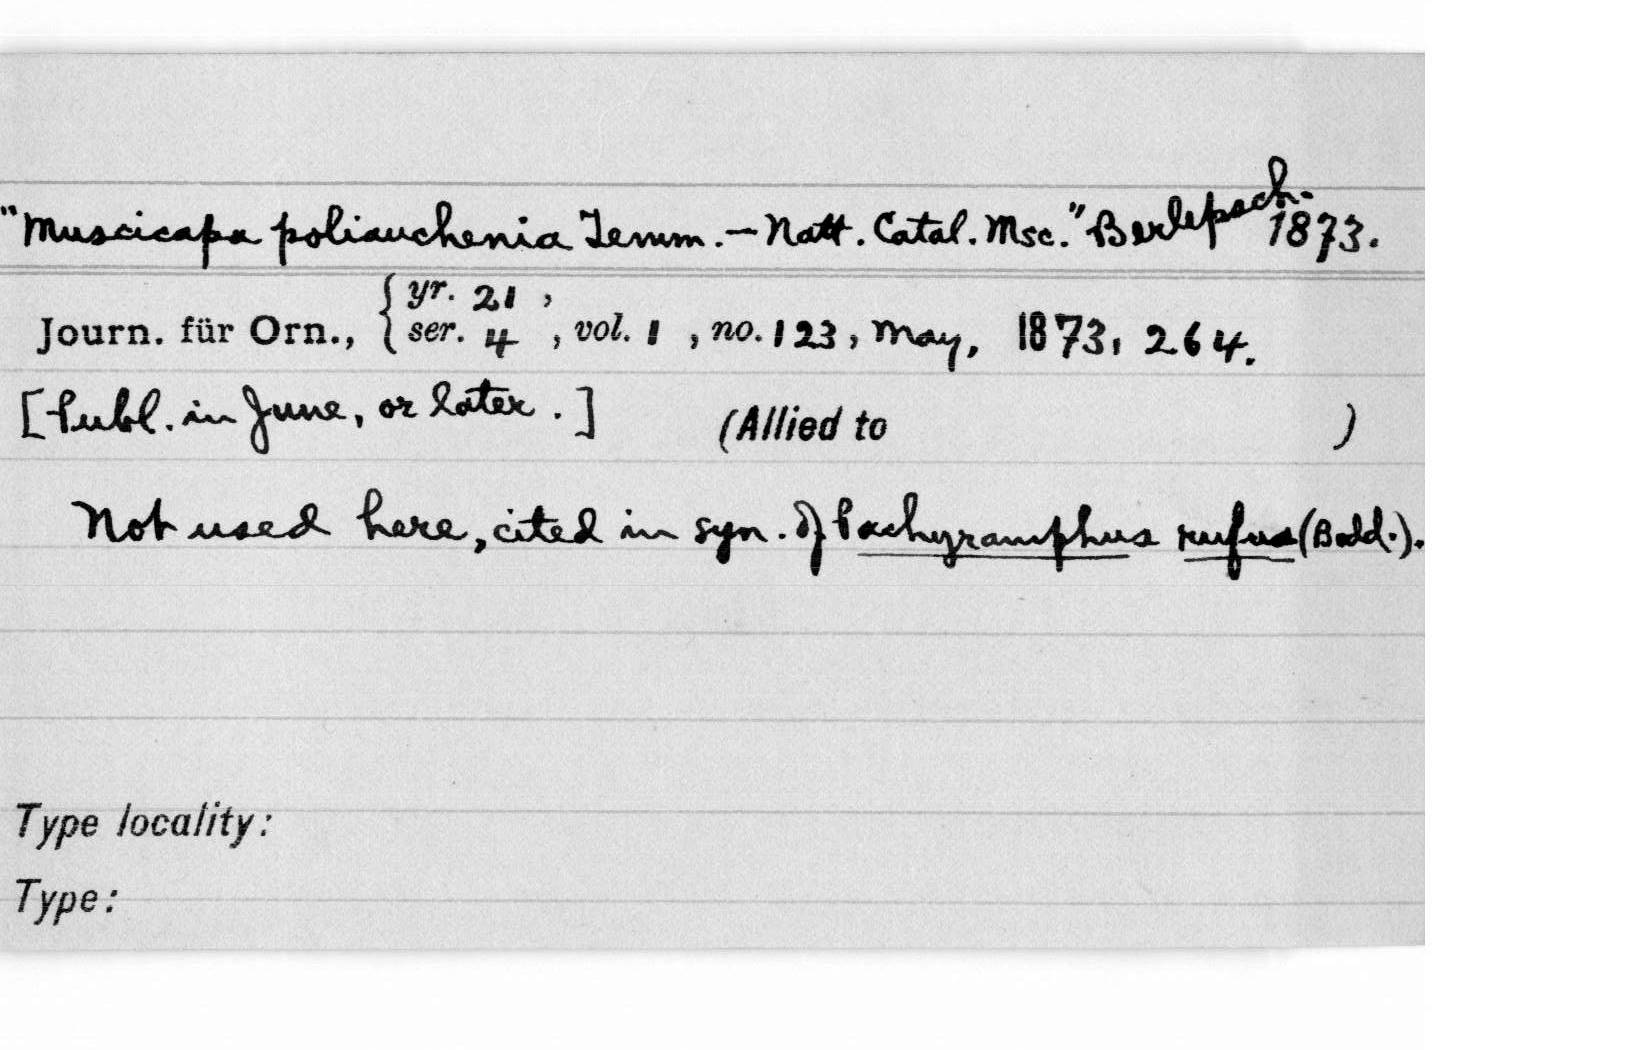 "Muscicapa poliauchenia Temm. — Natt. Catal. Msc." Berlepsch. 1873.
Journ. für Orn., { yr. 21 , ser. 4 , vol. 1 , no. 123, May, 1873, 264.
[Publ. in June, or later.] (Allied to )
Not used here, cited in syn. of Pachyramphus rufus (Bodd.).
Type locality:
Type: